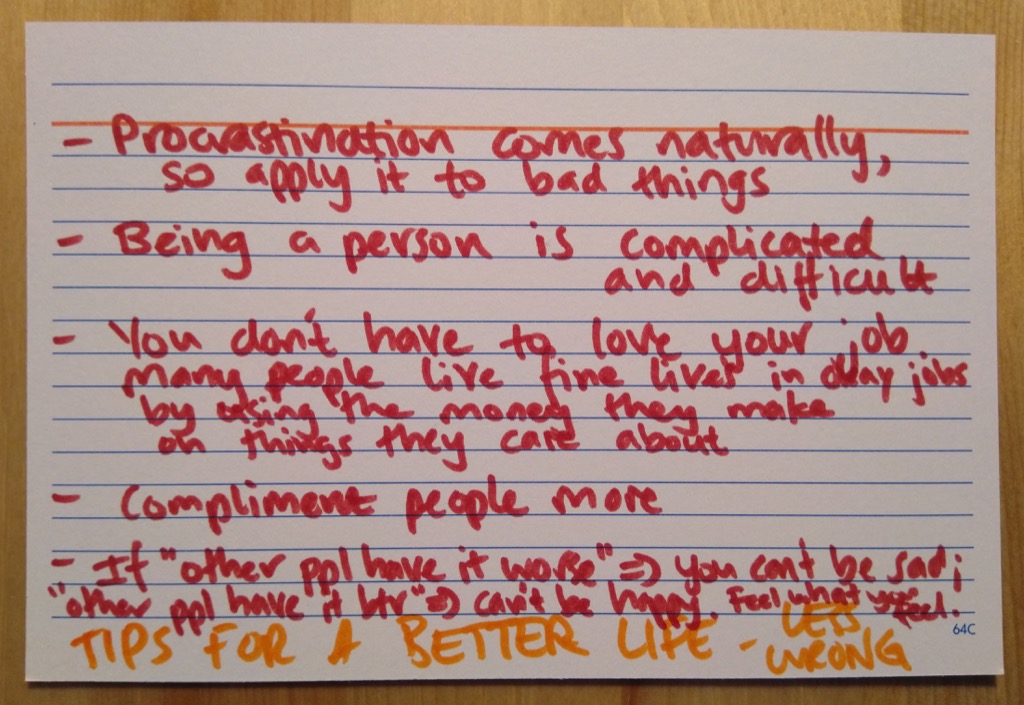 - Procrastination comes naturally,
so apply it to bad things
- Being a person is complicated
and difficult
- You don't have to love your job
many people live fine lives in okay jobs
by using the money they make
on things they care about
- Compliment people more
- If "other ppl have it worse" => you can't be sad;
"other ppl have it btr" => can't be happy. Feel what you
feel.
64C
TIPS FOR A BETTER LIFE - LETS
WRONG